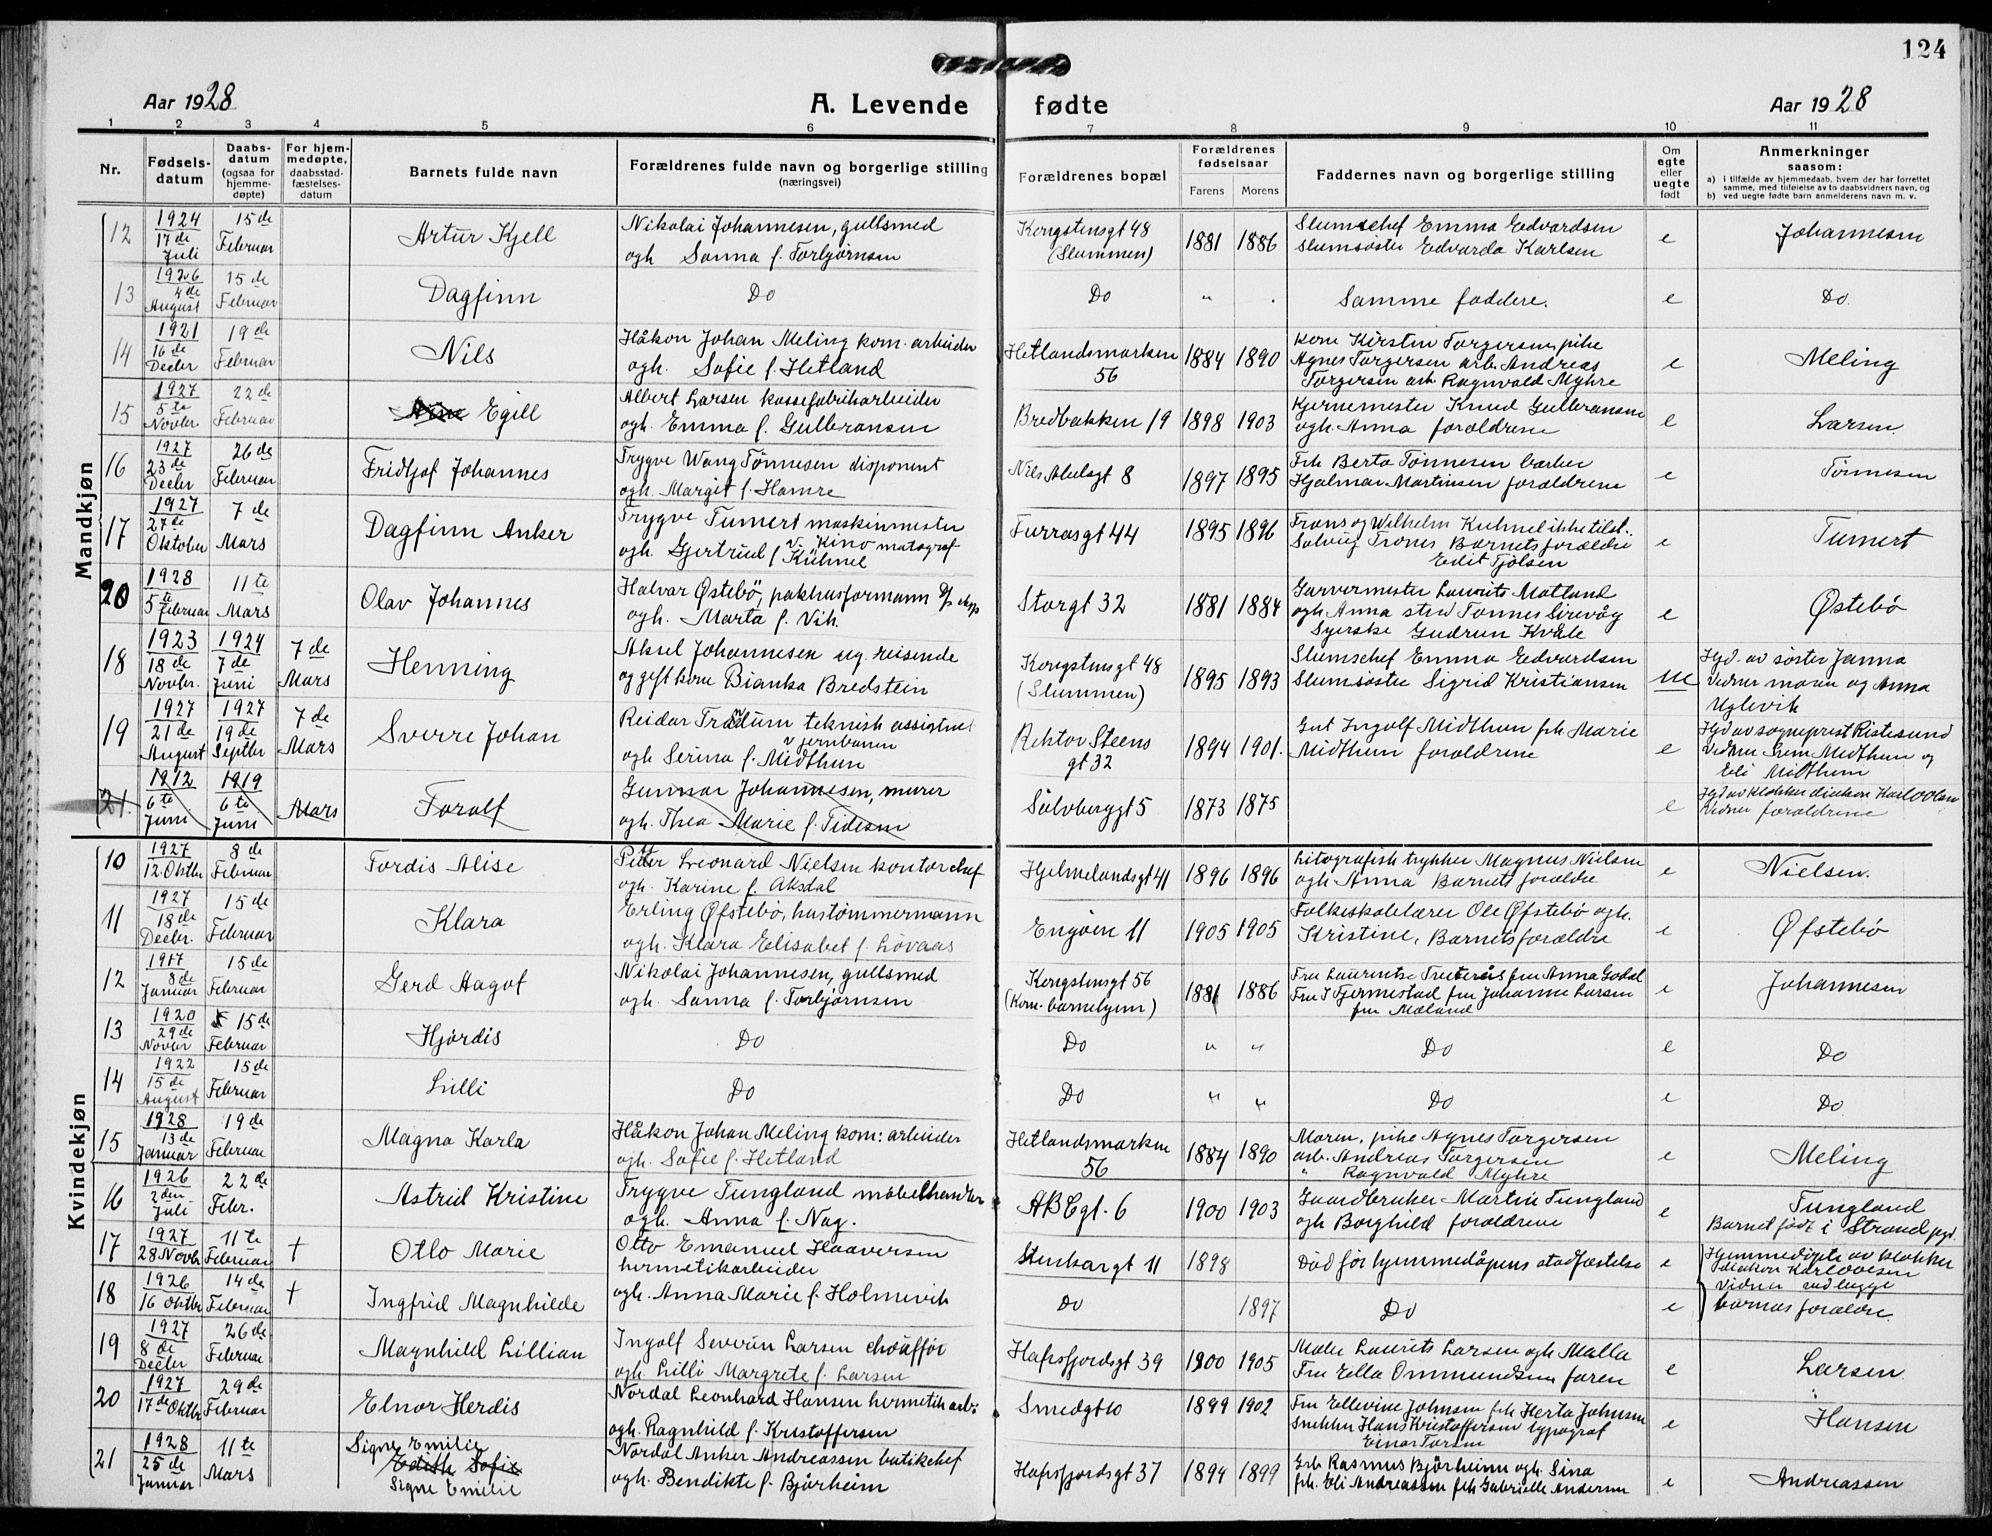 124
Aar 1928
A. Levende fødte
Aar 1928
1 2 3 4 5 6 7 8 9 10 11
Nr.
Fødsels-
datum
Daabs-
datum
(ogsaa for
hjemme-
døpte)
For hjem-
medøpte,
daabsstad-
fæstelses-
datum
Barnets fulde navn
Forældrenes fulde navn og borgerlige stilling
(næringsvei)
Forældrenes bopæl
Forældrenes
fødselsaar
Farens Morens
Faddernes navn og borgerlige stilling
Om
egte
eller
uegte
født
Anmerkninger
saasom:
a) i tilfælde av hjemmedaab, hvem der har forrettet
samme, med tilføielse av to daabsvidners navn, og
b) ved uegte fødte barn anmelderens navn m. v.
Mandkjøn
12
1924
17de
Juli
15de
Februar
Artur Kjell
Nikolai Johannesen, gullsmed
ogh Sanna f. Torbjørnsen
Kongstensgt 48
(Slummen)
1881 1886
Slumschef Emma Edvardsen
Slumsøster Edvarda Karlsen
e
Johannesen
13
1926
4de
August
15de
Februar
Dagfinn
Do
Do
" "
Samme faddere.
e
Do.
14
1921
16de
Decbr
19de
Februar
Nils
Håkon Johan Meling kom. arbeider
ogh. Sofie f. Hetland
Hetlandsmarken
56
1884 1890
Kone Kirsten Torgersen, pike
Agnes Torgersen arb. Andreas
Torgersen arb. Ragnvald Myhre
e
Meling
15
1927
5te
Novbr
22de
Februar
Egill
Albert Larsen kassefabrikarbeider
ogh. Emma f. Gulbransen
Bredbakken 19
1898 1903
Kjernemester Knud Gulbransen
ogh. Anna forældrene
e
Larsen
16
1927
23de
Decbr
26de
Februar
Fridtjof Johannes
Trygve Wang Tönnesen disponent
ogh. Margit f. Hamre
Nils Abelsgt 8
1897 1895
Frk Berta Tönnesen barber
Hjalmar Martinsen forældrene
e
Tönnesen
17
1927
27de
Oktober
7de
Mars
Dagfinn Anker
Trygve Tumert maskinmester
v. Kinomatograf
ogh. Gjertrud f. Kühnel
Furrasgt 44
1895 1896
Frans og Wilhelm Kuhnel ikke tilst.
Solveig Trones Barnets forældre
Edit Tjölsen
e
Tumert
20
1928
5te Februar
11te
Mars
Olav Johannes
Halvar Østebö, pakhusformann
ogh. Marta f. Vik.
Storgt 32
1881 1884
Garvermester Laurits Matland
ogh. Anna Tönnes Sirevåg
Syerske Gudrun Kvåle
e
Østebö
18
1923
18de
Novbr.
1924
7de
Juni
7de
Mars
Henning
Aksel Johannesen ug. reisende
og gift kone Bianka Bredstein
Kongstensgt 48
(Slummen)
1895 1893
Slumschef Emma Edvardsen
Slumsøster Sigrid Kristiansen
ue
Hjd. av søster Janna
Vidner mann og Anna
Uglevik
19
1927
21de
August
1927
19de
Septbr
7de
Mars
Sverre Johan
Reidar teknisk assistent
v Jernbanen
ogh Serina f. Midthun
Rektor Steens
gt 32
1894 1901.
Gut Ingolf Midthun frk Marie
Midthun forældrene
e
Hjd av sogneprest Ristesund
Vidner Midthun og
Eli Midthun
21.
1912
6te
Juni
1919
6te
Juni
Mars
Toralf
Gunnar Johannesen, murer
ogh. Thea Marie f. Tidesen
Sölvberggt 5
1873 1875
e
Hjd av klokker diakon Karl Olsen
Vidner forældrene
Kvindekjøn
10
1927
12 Oktbr
8de
Februar
Tordis Alise
Peter Leonard Nielsen kontorchef
ogh. Karine f. Aksdal
Hjelmelandsgt 41
1896 1896
Litografisk trykker Magnus Nielsen
ogh Anna Barnets forældre
e
Nielsen.
11
1927
18de
Decbr.
15de
Februar
Klara
Erling Øfstebö, hustømmermann
ogh. Klara Elisabet f. Lövaas
Engöen 11
1905 1905
Folkeskolelærer Ole Øfstebö ogh.
Kristine, Barnets forældre
e
Øfstebö
12
1917
8de
Januar
15de
Februar
Gerd Hagot
Nikolai Johannesen, gullsmed
ogh. Sanna f. Torbjørnsen
Kongstensgt 56
(Kom. barnehjem)
1881 1886
Fru Laurentse fru Anna Godal
Fru Tjermestad fru Johanne Larsen
fru Mæland
e
Johannesen
13
1920
29de
Novbr
15de
Februar
Hjördis
Do
Do
" "
Do
e
Do
14
1922
15de
August
15de
Februar
Lilli
Do
Do
" "
Do
e
Do
15
1928
13de
Januar
19de
Februar
Magna Karla
Håkon Johan Meling kom: arbeider
ogh. Sofie f. Hetland
Hetlandsmarken
56
1884 1890
Maren, pike Agnes Torgersen
arb. Andreas Torgersen
" Ragnvald Myhre
e
Meling
16
1926
2den
Juli
22de
Febr.
Astrid Kristine
Trygve Tungland möbelhandler
ogh. Anna f. Nag.
ABCgt. 6
1900 1903
Gaardbruker Martin Tungland
ogh Borghild forældrene
e
Tungland
Barnet født i Strand pgd.
17
1927
28 Novbr
11te
Februar
†
Otto Marie
Otto Emanuel Haaversen
hermetikarbeider
Stenkargt 11
1898
Död för hjemmedåpens stadfæstelse
e
Hjemmedöpte av klokker
diakon Karl Olsen
Vidner ved begge
barnas forældre.
18
1926
16 Oktbr
14de
Februar
†
Ingfrid Magnhilde
ogh. Anna Marie f. Holmevik
Do
1897
Do
e
19
1927
8de
Decbr
26de
Februar
Magnhild Lillian
Ingolf Severin Larsen chaufför
ogh. Lilli Margrete f. Larsen
Hafrsfjordsgt 39
1900 1905
Maler Laurits Larsen ogh Malla
Fru Ella Ommundsen faren
e
Larsen
20
1927
17de Oktbr
29de
Februar
Elnor Herdis
Nordal Leonhard Hansen hermetikarb.
ogh. Ragnhild f. Kristoffersen
Smedgt 10
1899 1902
Fru Ellevine Johnsen frk Herta Johnsen
Snekker Hans Kristoffersen typograf
Einar Torsen
e
Hansen
21
1928
25de
Januar
11te
Mars
Signe Emilie
Edith Sofie
Signe Emilie
Nordal Anker Andreassen butikchef
ogh. Bendikte f. Bjørheim
Hafrsfjordsgt 37
1894 1899
Grb Rasmus Bjørheim ogh. Sina
frk. Eli Andreassen frk Gabrielle Andersen
e
Andreassen